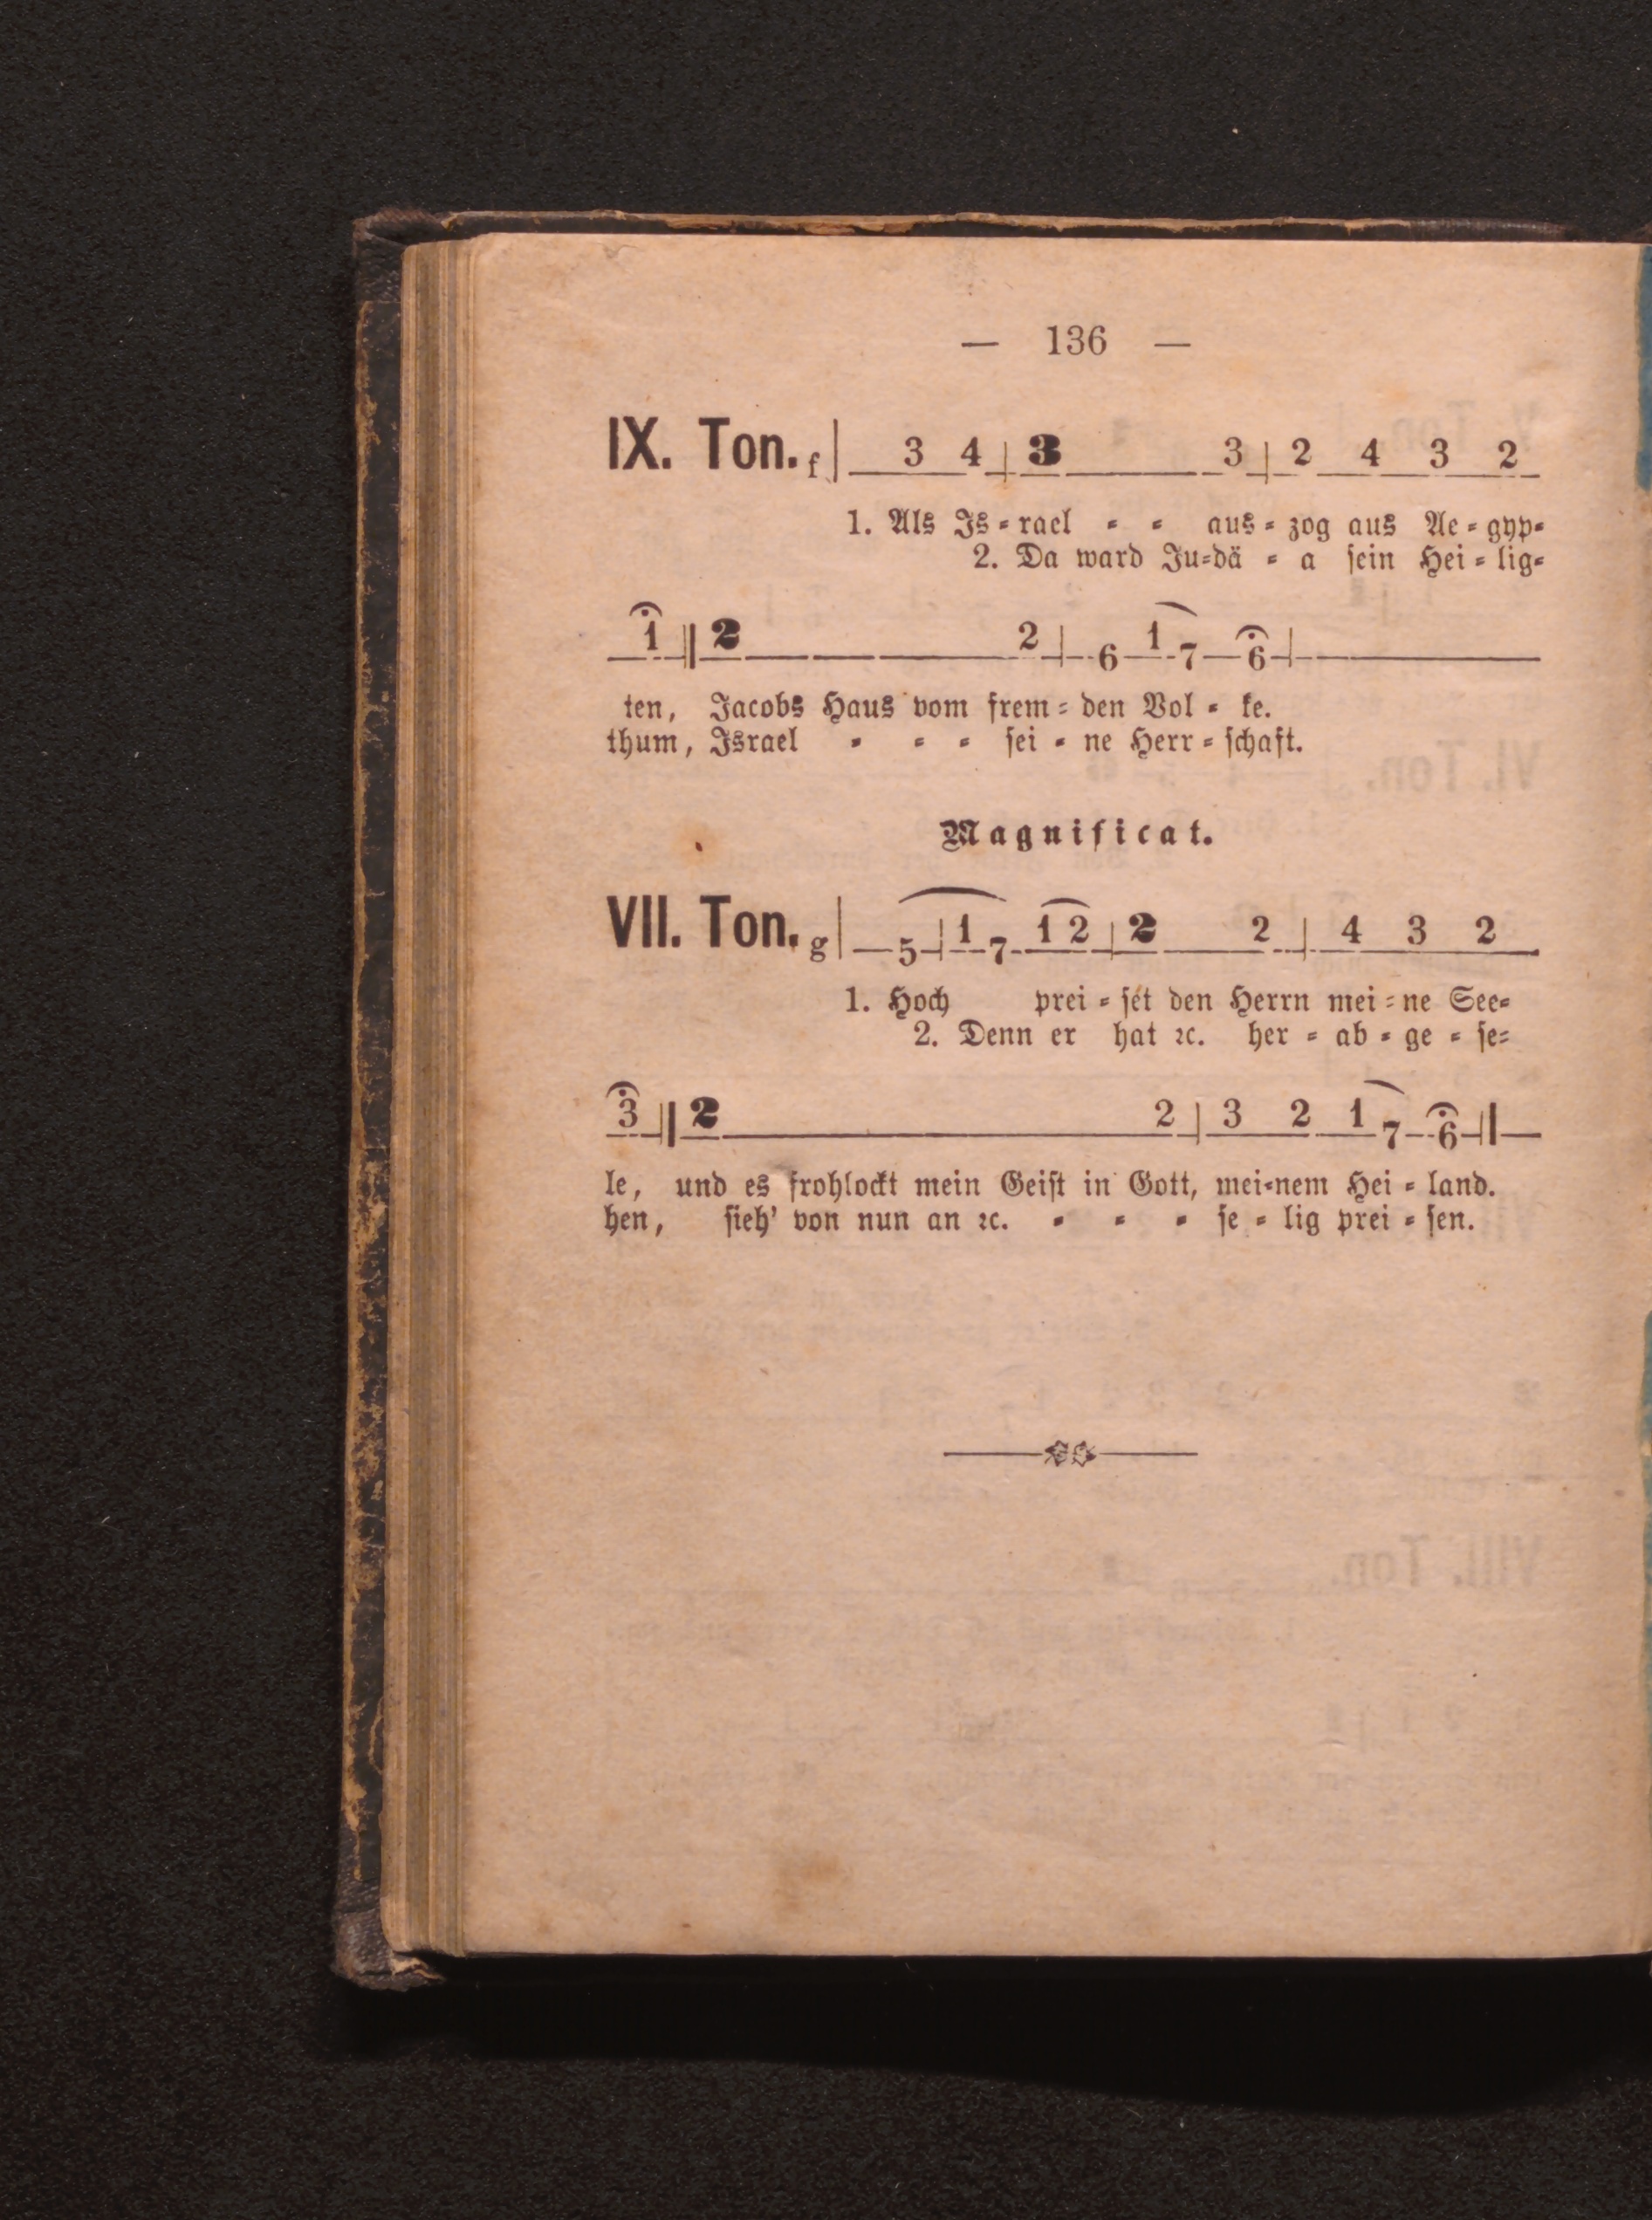 — 136 —
IX. Ton. f 3 4 3 3 2 4 3 2
1. Als Is-rael - - aus-zog aus Ae-gyp-
2. Da ward Ju-dä - a sein Hei-lig-
1 2 2 6 1 7 6
ten, Jacobs Haus vom frem-den Vol-ke.
thum, Israel - - - sei-ne Herr-schaft.
Magnificat.
VII. Ton. g 5 1 7 1 2 2 2 4 3 2
1. Hoch prei-set den Herrn mei-ne See-
2. Denn er hat ꝛc. her-ab-ge-se-
3 2 2 3 2 1 7 6
le, und es frohlockt mein Geist in Gott, mei-nem Hei-land.
hen, sieh' von nun an ꝛc. - - - se-lig prei-sen.